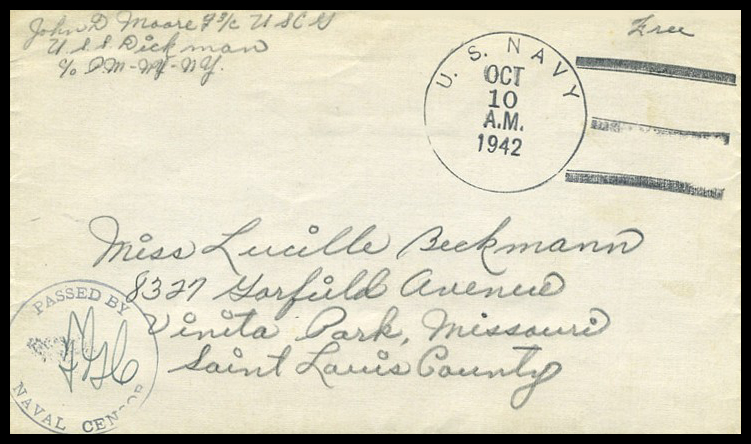 John D Moore F 3/c USCG
USS Dickman
c/o P.M-NY-NY.
Free
U. S. NAVY
OCT
10
A.M.
1942
Miss Lucille Beckmann
8327 Garfield Avenue
Vinita Park, Missouri
Saint Louis County
PASSED BY
NAVAL CENSOR